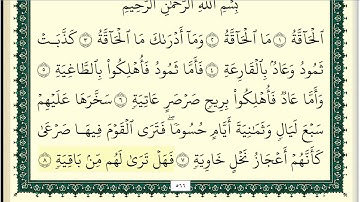 بِسْمِ اللَّهِ الرَّحْمَٰنِ الرَّحِيمِ
الْحَاقَّةُ ١ مَا الْحَاقَّةُ ٢ وَمَا أَدْرَاكَ مَا الْحَاقَّةُ ٣ كَذَّبَتْ
ثَمُودُ وَعَادٌ بِالْقَارِعَةِ ٤ فَأَمَّا ثَمُودُ فَأُهْلِكُوا بِالطَّاغِيَةِ ٥
وَأَمَّا عَادٌ فَأُهْلِكُوا بِرِيحٍ صَرْصَرٍ عَاتِيَةٍ ٦ سَخَّرَهَا عَلَيْهِمْ
سَبْعَ لَيَالٍ وَثَمَانِيَةَ أَيَّامٍ حُسُومًا ۖ فَتَرَى الْقَوْمَ فِيهَا صَرْعَىٰ
كَأَنَّهُمْ أَعْجَازُ نَخْلٍ خَاوِيَةٍ ٧ فَهَلْ تَرَىٰ لَهُم مِّن بَاقِيَةٍ ٨
٥٦٦